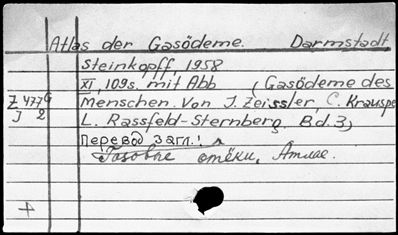 Atlas der Gasödeme. Darmstadt
Steinkopff 1958
XI, 109s. mit Abb (Gasödeme des
Z 477G Menschen. Von J. Zeissler, C. Krauspe
J 2 L. Rassfeld-Sternberg. Bd.3)
Перевод загл.:
Газовые отёки, Атлас.
4